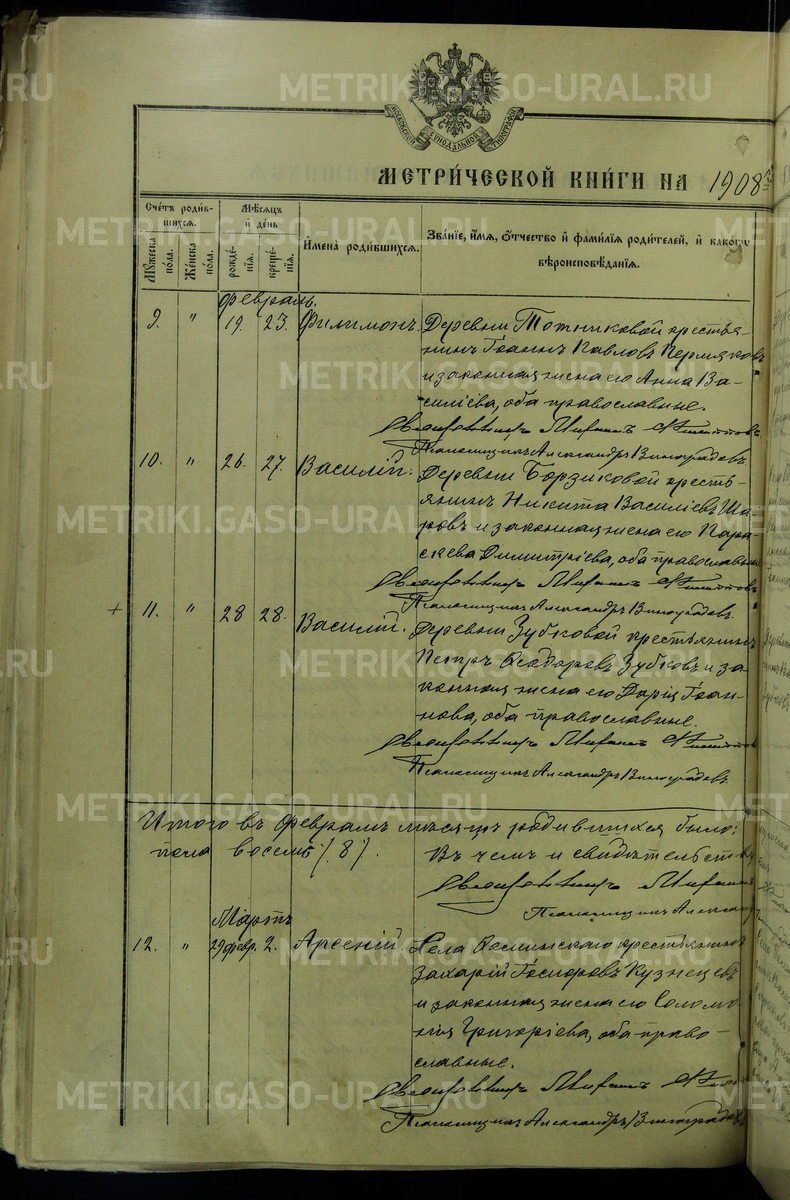 METRIKI.GASO-URAL.RU
МОСКОВСКОЙ СѴНОДАЛЬНОЙ ТИПОГРАФІИ
МЕТРИ́ЧЕСКОЙ КНИ́ГИ НА 1908
Сче́тъ роди́в-
шихся.
Мѣ́сяцъ
и҆ де́нь
Мꙋ́жеска по́ла.
Же́нска по́ла.
рожде́-нїѧ.
креще́-нїѧ.
И҆мена̀ роди́вшихсѧ.
Зва́нїе, и҆́мѧ, ѻ҆́тчество и҆ фами́лїѧ роди́телей, и҆ како́гѡ
вѣроисповѣ́данїѧ.
Февраль.
9. " 19. 23. Филимонъ. Деревни Тотниковой крестья-
нинъ Іоаннъ Павловъ Пермяковъ
и законная жена его Анна Ва-
силіева, оба православные.
Псаломщикъ Александръ Виноградовъ
10. " 26. 27. Василій. Деревни Борзиковой кресть-
янинъ Никита Василіевъ Ша-
ровъ и законная жена его Пара-
скева Димитріева, оба православные
Псаломщикъ Александръ Виноградовъ.
+ 11. " 28 28. Василій. Деревни Зубковой крестьянинъ
Петръ Ѳеодоровъ Зубковъ и за-
конная жена его Дарія Іоан-
нова, оба православные.
Псаломщикъ Александръ Виноградовъ.
Итого въ Февралѣ мѣсяцѣ родившихся было:
пола восемь /8/. Въ чемъ и свидѣтельств
Псаломщикъ Александ
Мартъ
12. " 29 февр. 2. Арсеній. Села крестьянинъ
Захарій Кузнецовъ
и законная жена его Соломо-
нія Григоріева, оба право-
славные.
Псаломщикъ Александръ Виноградовъ